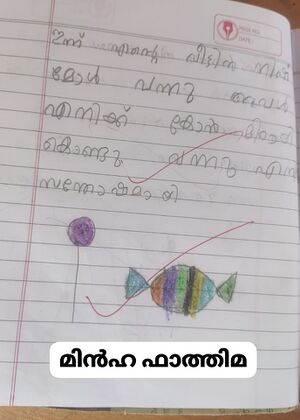 PAGE NO.
DATE:
ഇന്ന് എന്റെ വീട്ടിൽ
മോൾ വന്നു അവൾ
എനിക്ക് കോൽ മിഠായി
കൊണ്ടു വന്നു
സന്തോഷമായി
മിൻഹ ഫാത്തിമ